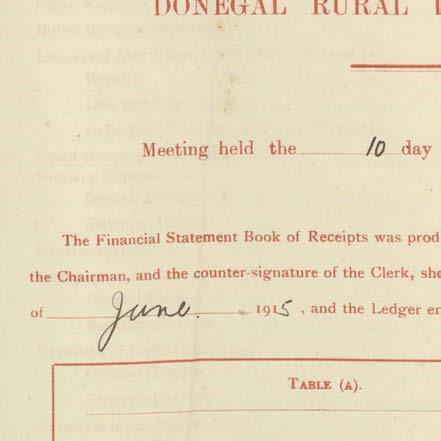 DONEGAL RURAL
Meeting held the 10 day
The Financial Statement Book of Receipts was prod
the Chairman, and the counter-signature of the Clerk, she
of June. 1915, and the Ledger en
TABLE (A).